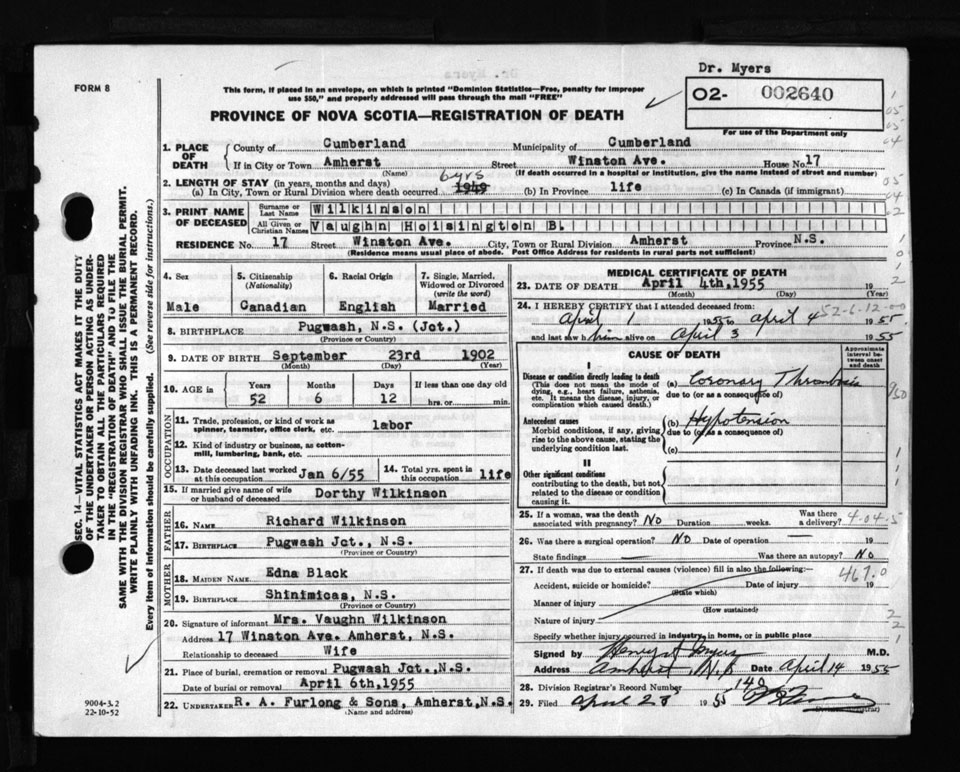 Dr. Myers
FORM 8
This form, if placed in an envelope, on which is printed "Dominion Statistics—Free, penalty for improper
use $50," and properly addressed will pass through the mail "FREE"
02- 002640
For use of the Department only
PROVINCE OF NOVA SCOTIA—REGISTRATION OF DEATH
SEC. 14—VITAL STATISTICS ACT MAKES IT THE DUTY
OF THE UNDERTAKER OR PERSON ACTING AS UNDER-
TAKER TO OBTAIN ALL THE PARTICULARS REQUIRED
IN THE "REGISTRATION OF DEATH" AND TO FILE THE
SAME WITH THE DIVISION REGISTRAR WHO SHALL ISSUE THE BURIAL PERMIT.
WRITE PLAINLY WITH UNFADING INK. THIS IS A PERMANENT RECORD.
Every item of information should be carefully supplied. (See reverse side for instructions.)
1. PLACE OF DEATH County of Cumberland Municipality of Cumberland
If in City or Town Amherst Street Winston Ave. House No. 17
(Name) (If death occurred in a hospital or institution, give the name instead of street and number)
6yrs
2. LENGTH OF STAY (in years, months and days)
(a) In City, Town or Rural Division where death occurred 1949 (b) In Province life (c) In Canada (if immigrant)
3. PRINT NAME OF DECEASED Surname or Last Name Wilkinson
All Given or Christian Names Vaughn Hoisington B.
RESIDENCE No. 17 Street Winston Ave. City, Town or Rural Division Amherst Province N.S.
(Residence means usual place of abode. Post Office Address for residents in rural parts not sufficient)
4. Sex Male
5. Citizenship (Nationality) Canadian
6. Racial Origin English
7. Single, Married, Widowed or Divorced (write the word) Married
8. BIRTHPLACE Pugwash, N.S. (Jct.)
(Province or Country)
9. DATE OF BIRTH September 23rd 1902
(Month) (Day) (Year)
10. AGE in Years Months Days If less than one day old
52 6 12 hrs. or min.
OCCUPATION
11. Trade, profession, or kind of work as spinner, teamster, office clerk, etc. labor
12. Kind of industry or business, as cotton-mill, lumbering, bank, etc.
13. Date deceased last worked at this occupation Jan 6/55
14. Total yrs. spent in this occupation life
15. If married give name of wife or husband of deceased Dorthy Wilkinson
FATHER
16. NAME Richard Wilkinson
17. BIRTHPLACE Pugwash Jct., N.S.
(Province or Country)
MOTHER
18. MAIDEN NAME Edna Black
19. BIRTHPLACE Shinimicas, N.S.
(Province or Country)
20. Signature of informant Mrs. Vaughn Wilkinson
Address 17 Winston Ave. Amherst, N.S.
Relationship to deceased Wife
21. Place of burial, cremation or removal Pugwash Jct., N.S.
Date of burial or removal April 6th, 1955
22. UNDERTAKER R. A. Furlong & Sons, Amherst, N.S.
(Name and address)
9004-3.2
22-10-52
MEDICAL CERTIFICATE OF DEATH
23. DATE OF DEATH April 4th, 1955 19
(Month) (Day) (Year)
24. I HEREBY CERTIFY that I attended deceased from:
April 1 1955 to April 4 1955
52-6-12-00
and last saw him alive on April 3 1955
CAUSE OF DEATH
Approximate interval between onset and death
I
Disease or condition directly leading to death (a) Coronary Thrombosis
(This does not mean the mode of dying, e.g., heart failure, asthenia, etc. It means the disease, injury, or complication which caused death.)
due to (or as a consequence of)
Antecedent causes (b) Hypotension
Morbid conditions, if any, giving rise to the above cause, stating the underlying condition last.
due to (or as a consequence of)
(c)
II
Other significant conditions
contributing to the death, but not related to the disease or condition causing it.
25. If a woman, was the death associated with pregnancy? No Duration weeks. Was there a delivery?
4-04-5
26. Was there a surgical operation? No Date of operation — 19
State findings — Was there an autopsy? No
27. If death was due to external causes (violence) fill in also the following:—
467.0
Accident, suicide or homicide? Date of injury 19
(State which)
Manner of injury
(How sustained)
Nature of injury
Specify whether injury occurred in industry, in home, or in public place
Signed by Henry Myers M.D.
Address Amherst, N.S Date April 14 1955
28. Division Registrar's Record Number 140
29. Filed April 23 1955